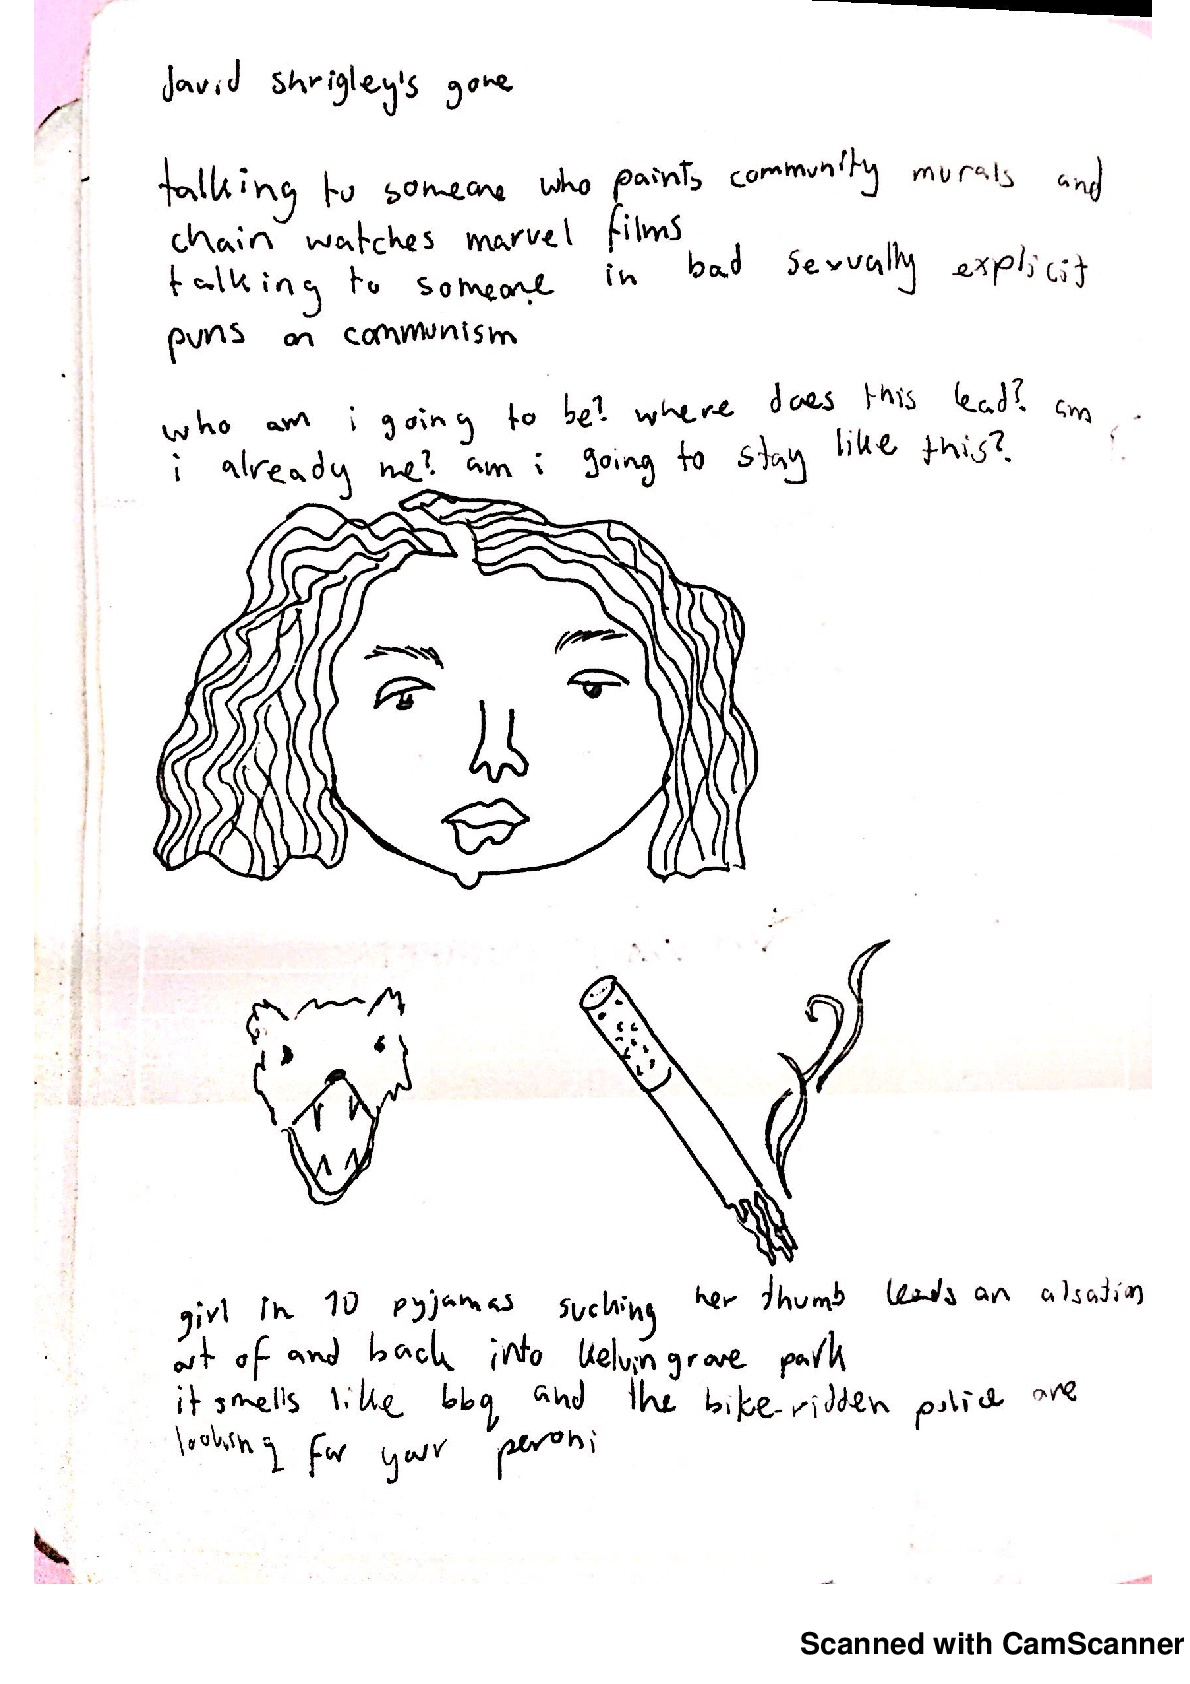 david shrigley's gone
talking to someone who paints community murals and
chain watches marvel films
talking to someone in bad sexually explicit
puns on communism
who am i going to be? where does this lead? am
i already me? am i going to stay like this?
girl in 10 pyjamas sucking her thumb leads an alsation
out of and back into kelvingrove park
it smells like bbq and the bike-ridden police are
looking for your peroni
Scanned with CamScanner